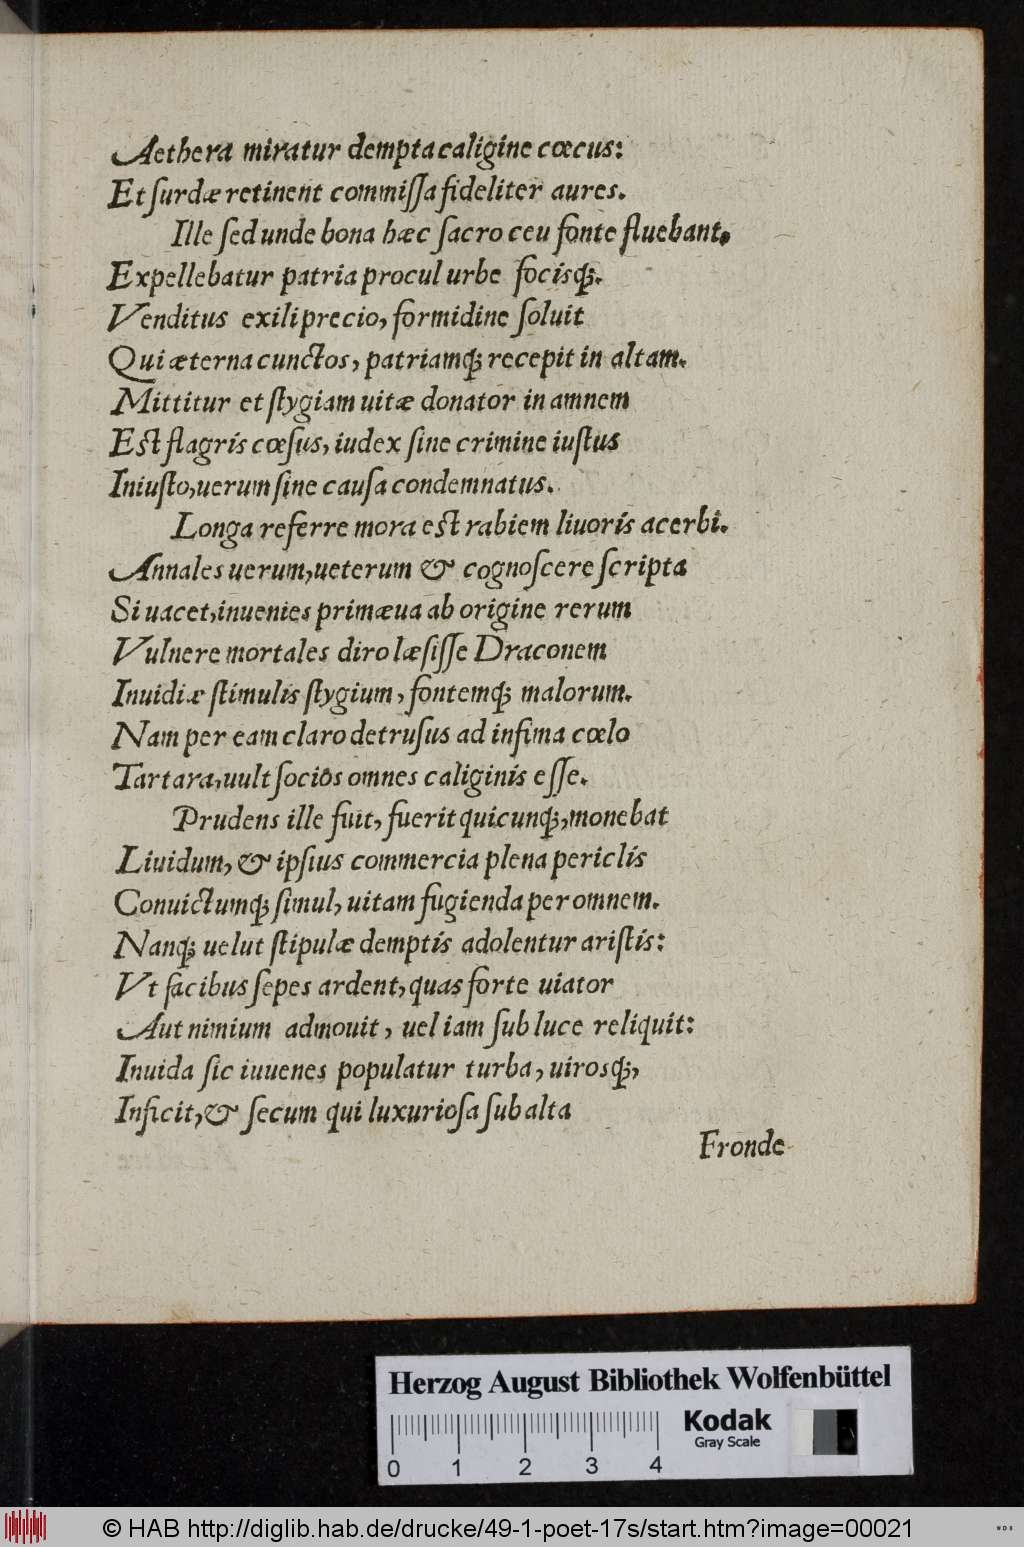 Aethera miratur dempta caligine cœcus:
Et ſurdæ retinent commiſſa fideliter aures.
Ille ſed unde bona hæc ſacro ceu fonte fluebant,
Expellebatur patria procul urbe focisq́;.
Venditus exili precio, formidine ſoluit
Qui æterna cunctos, patriamq́; recepit in altam.
Mittitur et ſtygiam uitæ donator in amnem
Eſt flagris cœſus, iudex ſine crimine iuſtus
Iniuſto, uerum ſine cauſa condemnatus.
Longa referre mora eſt rabiem liuoris acerbi.
Annales uerum, ueterum & cognoſcere ſcripta
Si uacet, inuenies primæua ab origine rerum
Vulnere mortales diro læſiſſe Draconem
Inuidiæ ſtimulis ſtygium, fontemq́; malorum.
Nam per eam claro detruſus ad infima cœlo
Tartara, uult ſociôs omnes caliginis eſſe.
Prudens ille fuit, fuerit quicunq́;, monebat
Liuidum, & ipſius commercia plena periclis
Conuictumq́; ſimul, uitam fugienda per omnem.
Nanq́; uelut ſtipulæ demptis adolentur ariſtis:
Vt facibus ſepes ardent, quas forte uiator
Aut nimium admouit, uel iam ſub luce reliquit:
Inuida ſic iuuenes populatur turba, uirosq́;,
Inficit, & ſecum qui luxurioſa ſub alta
Fronde
Herzog August Bibliothek Wolfenbüttel
Kodak
Gray Scale
0 1 2 3 4
© HAB http://diglib.hab.de/drucke/49-1-poet-17s/start.htm?image=00021